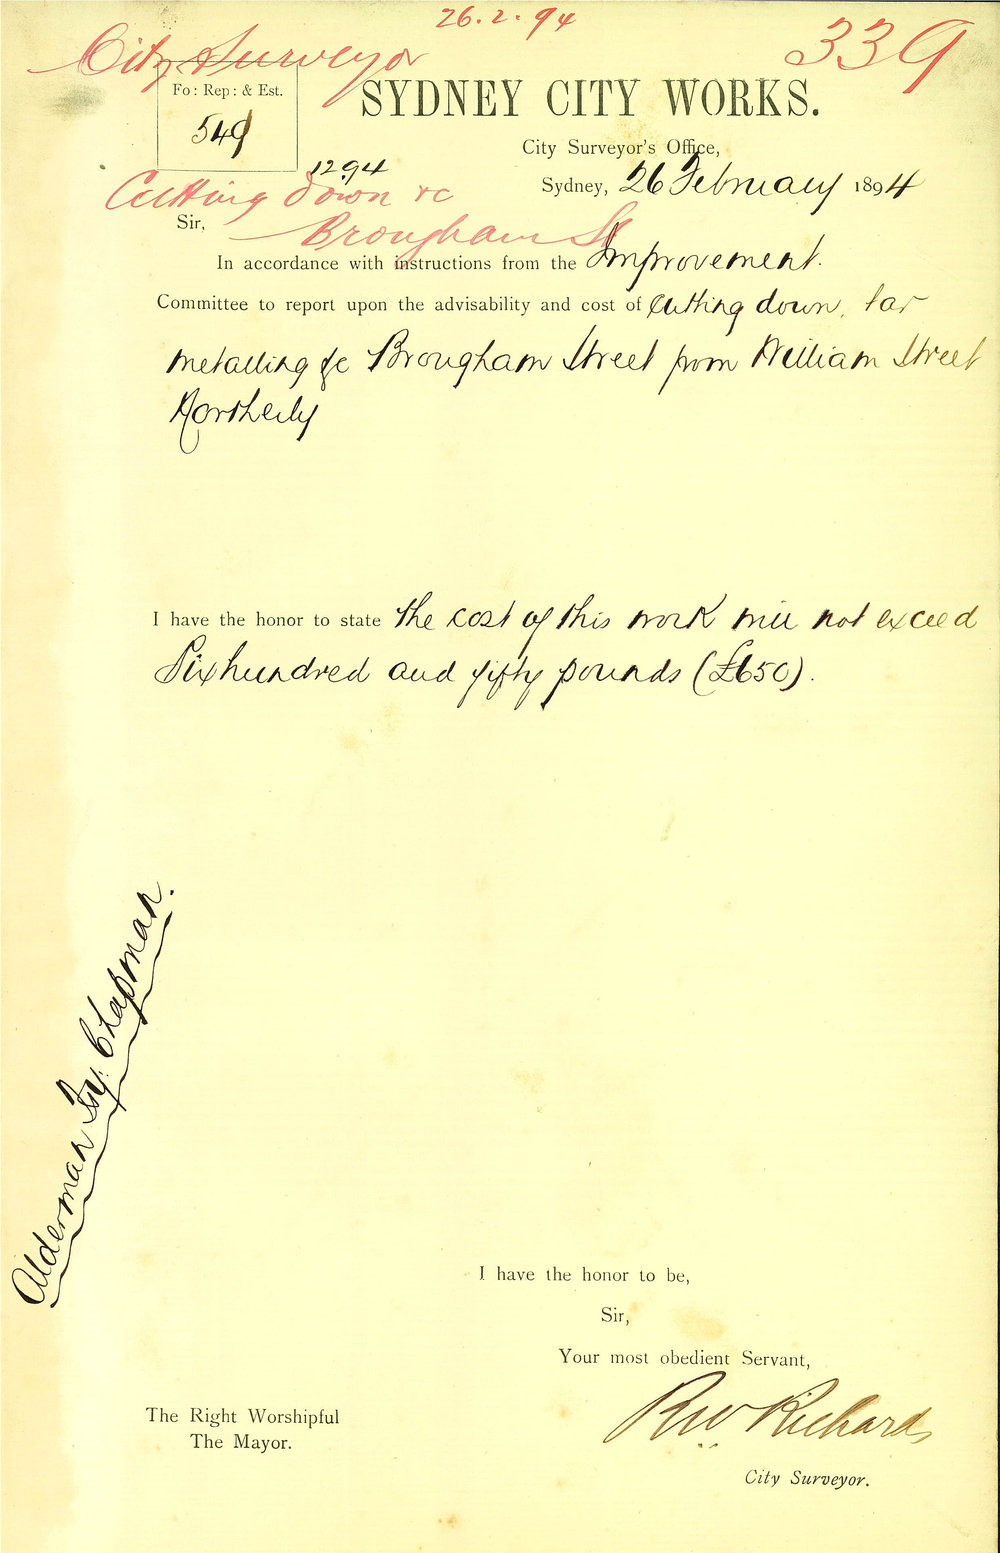 26.2.94
City Surveyor
339
Fo: Rep: & Est.
549
SYDNEY CITY WORKS.
City Surveyor's Office,
1294
Sydney, 26 February 1894
Cutting down &c
Sir,
Brougham St
In accordance with instructions from the Improvement
Committee to report upon the advisability and cost of Cutting down, tar
metalling &c Brougham Street from William Street
Northerly
I have the honor to state the cost of this work will not exceed
Six hundred and fifty pounds (£650).
Alderman Chapman.
I have the honor to be,
Sir,
Your most obedient Servant,
The Right Worshipful
The Mayor.
RW Richards
City Surveyor.